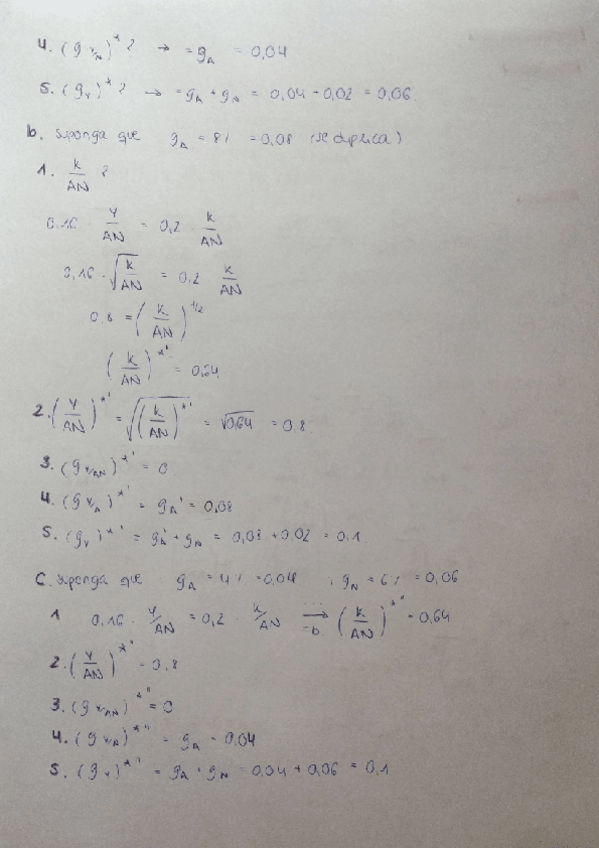 4. (g Y/N)* ? → = gA = 0,04
5. (gY)* ? → = gA + gN = 0,04 + 0,02 = 0,06
b. Suponga que gA = 8% = 0,08 (se duplica)
1. K/AN ?
0,16 · Y/AN = 0,2 · K/AN
0,16 · √(K/AN) = 0,2 K/AN
0,8 = (K/AN)^1/2
(K/AN)*' = 0,64
2. (Y/AN)*' = √((K/AN)*') = √0,64 = 0,8
3. (g Y/AN)*' = 0
4. (g Y/N)*' = gA' = 0,08
5. (gY)*' = gA' + gN = 0,08 + 0,02 = 0,1
C. Suponga que gA = 4% = 0,04 , gN = 6% = 0,06
1 0,16 · Y/AN = 0,2 · K/AN → =b (K/AN)*'' = 0,64
2. (Y/AN)*'' = 0,8
3. (g Y/AN)*'' = 0
4. (g Y/N)*'' = gA = 0,04
5. (gY)*'' = gA + gN = 0,04 + 0,06 = 0,1